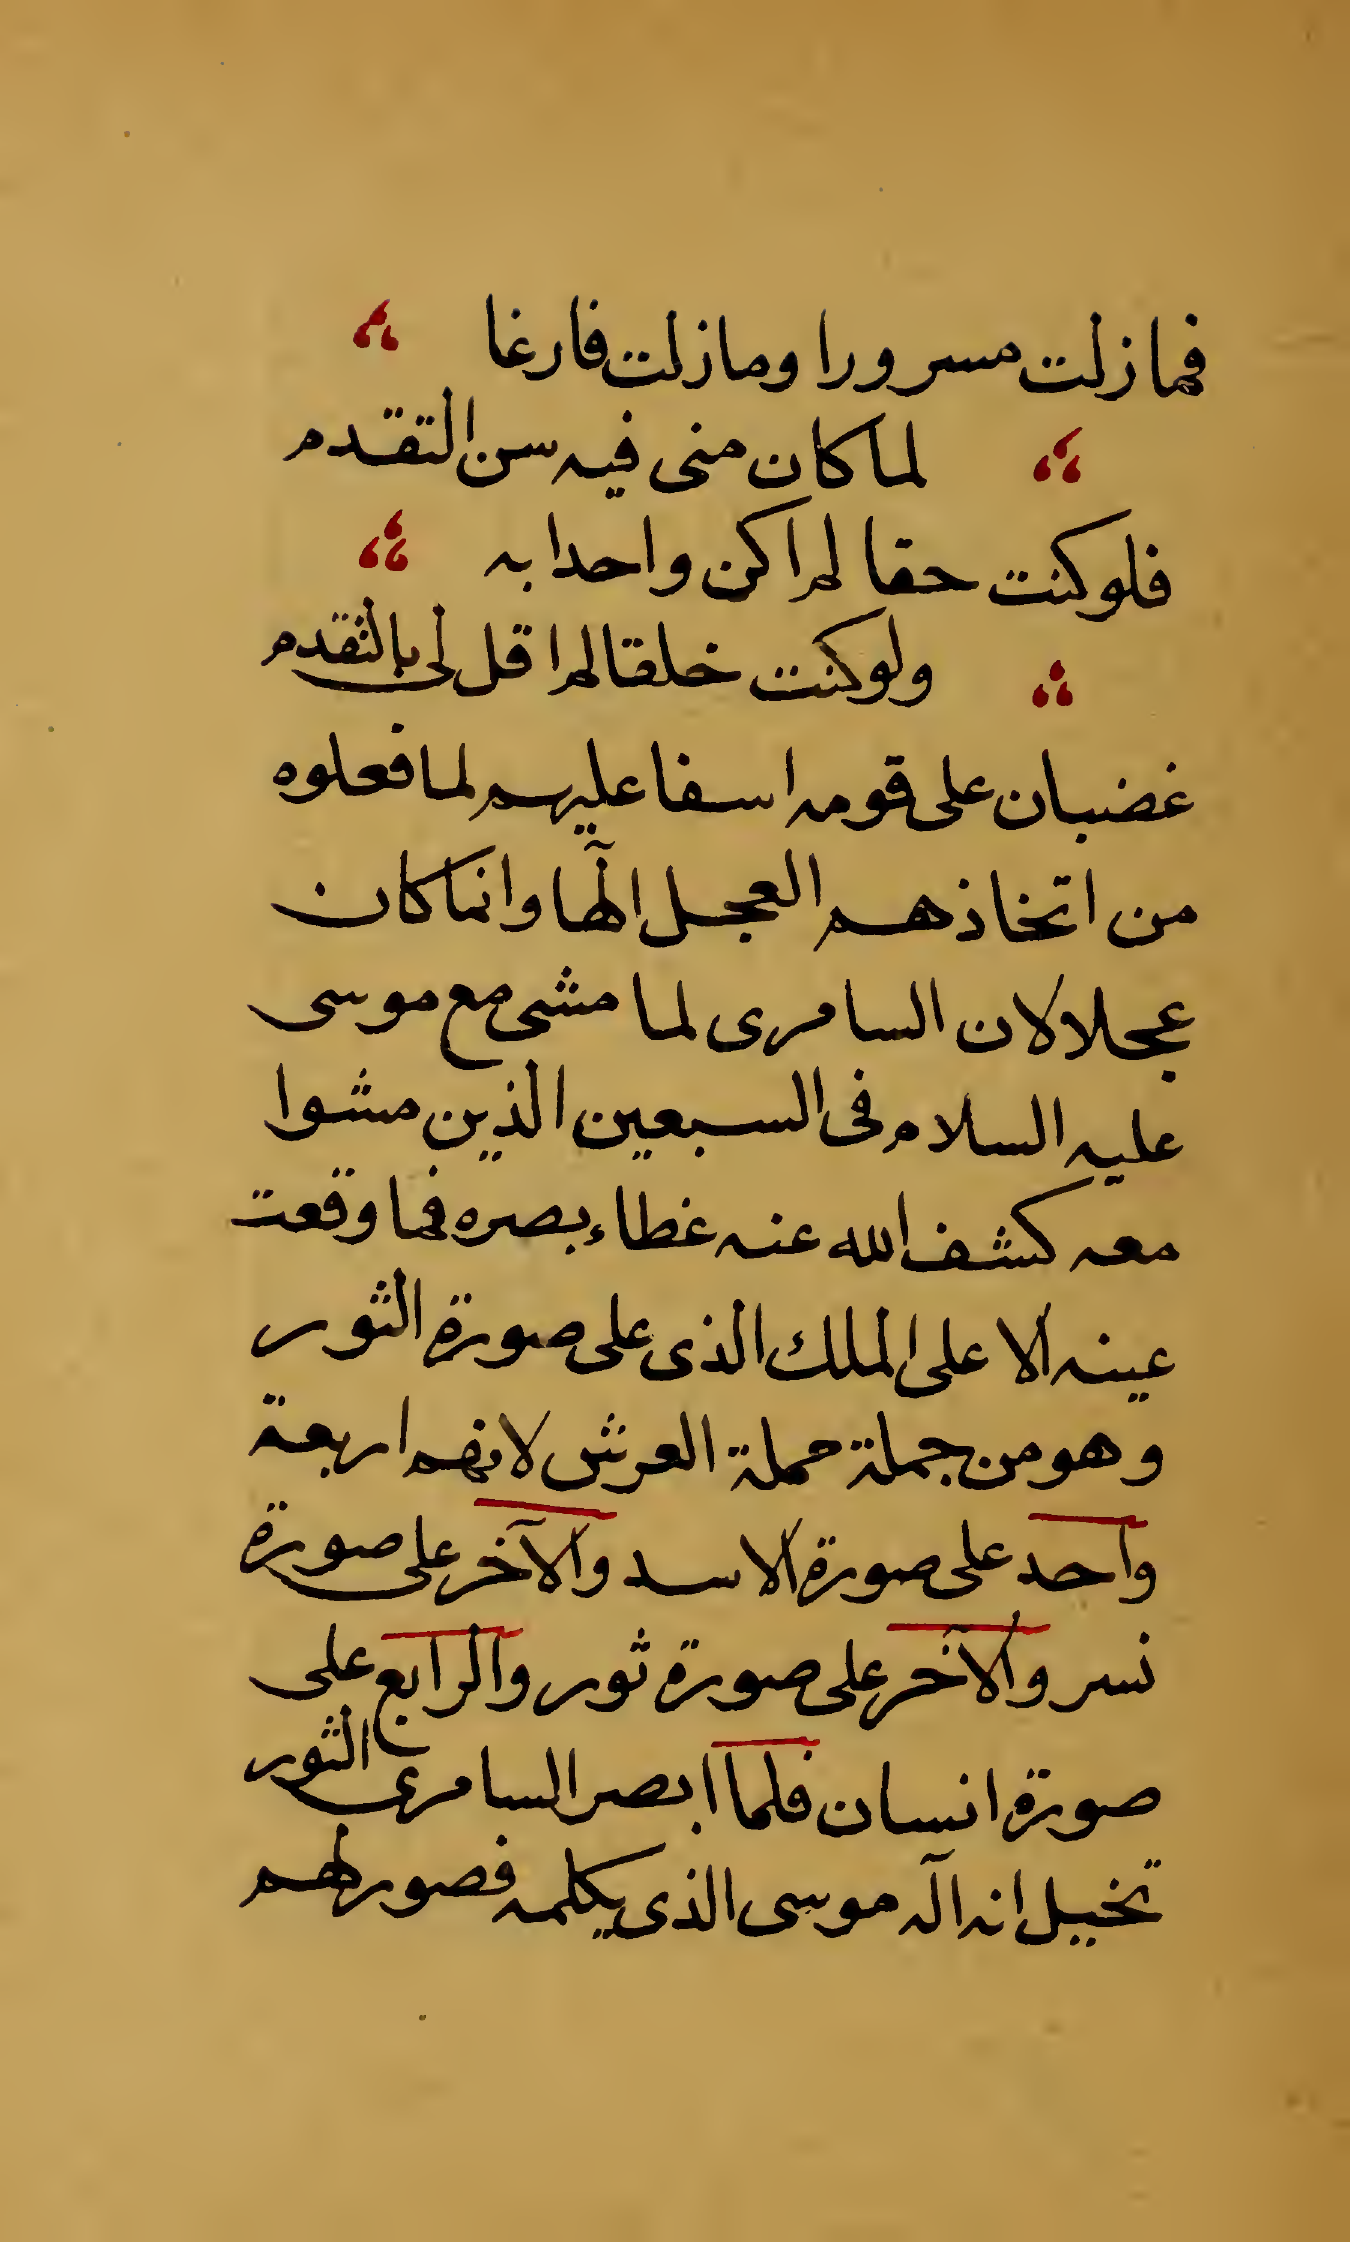 فما زلت مسرورا وما زلت فارغا
لما كان منى فيه سن التقدم
فلو كنت حقا لم اكن واحدا به
ولو كنت خلقا لم اقل لى بالتقدم
غضبان على قومه اسفا عليهم لما فعلوه
من اتخاذهم العجل الٓها وانما كان
عجلا لان السامرى لما مشى مع موسى
عليه السلام فى السبعين الذين مشوا
معه كشف الله عنه غطاء بصره فما وقعت
عينه الا على الملك الذى على صورة الثور
وهو من جملة حملة العرش لانهم اربعة
واحد على صورة الاسد والآخر على صورة
نسر والآخر على صورة ثور والرابع على
صورة انسان فلما ابصر السامرى الثور
تخيل انه الٓه موسى الذى يكلمه فصور لهم